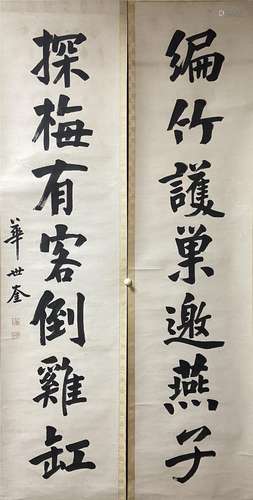 編竹護巢邀燕子
探梅有客倒雞缸
華世奎